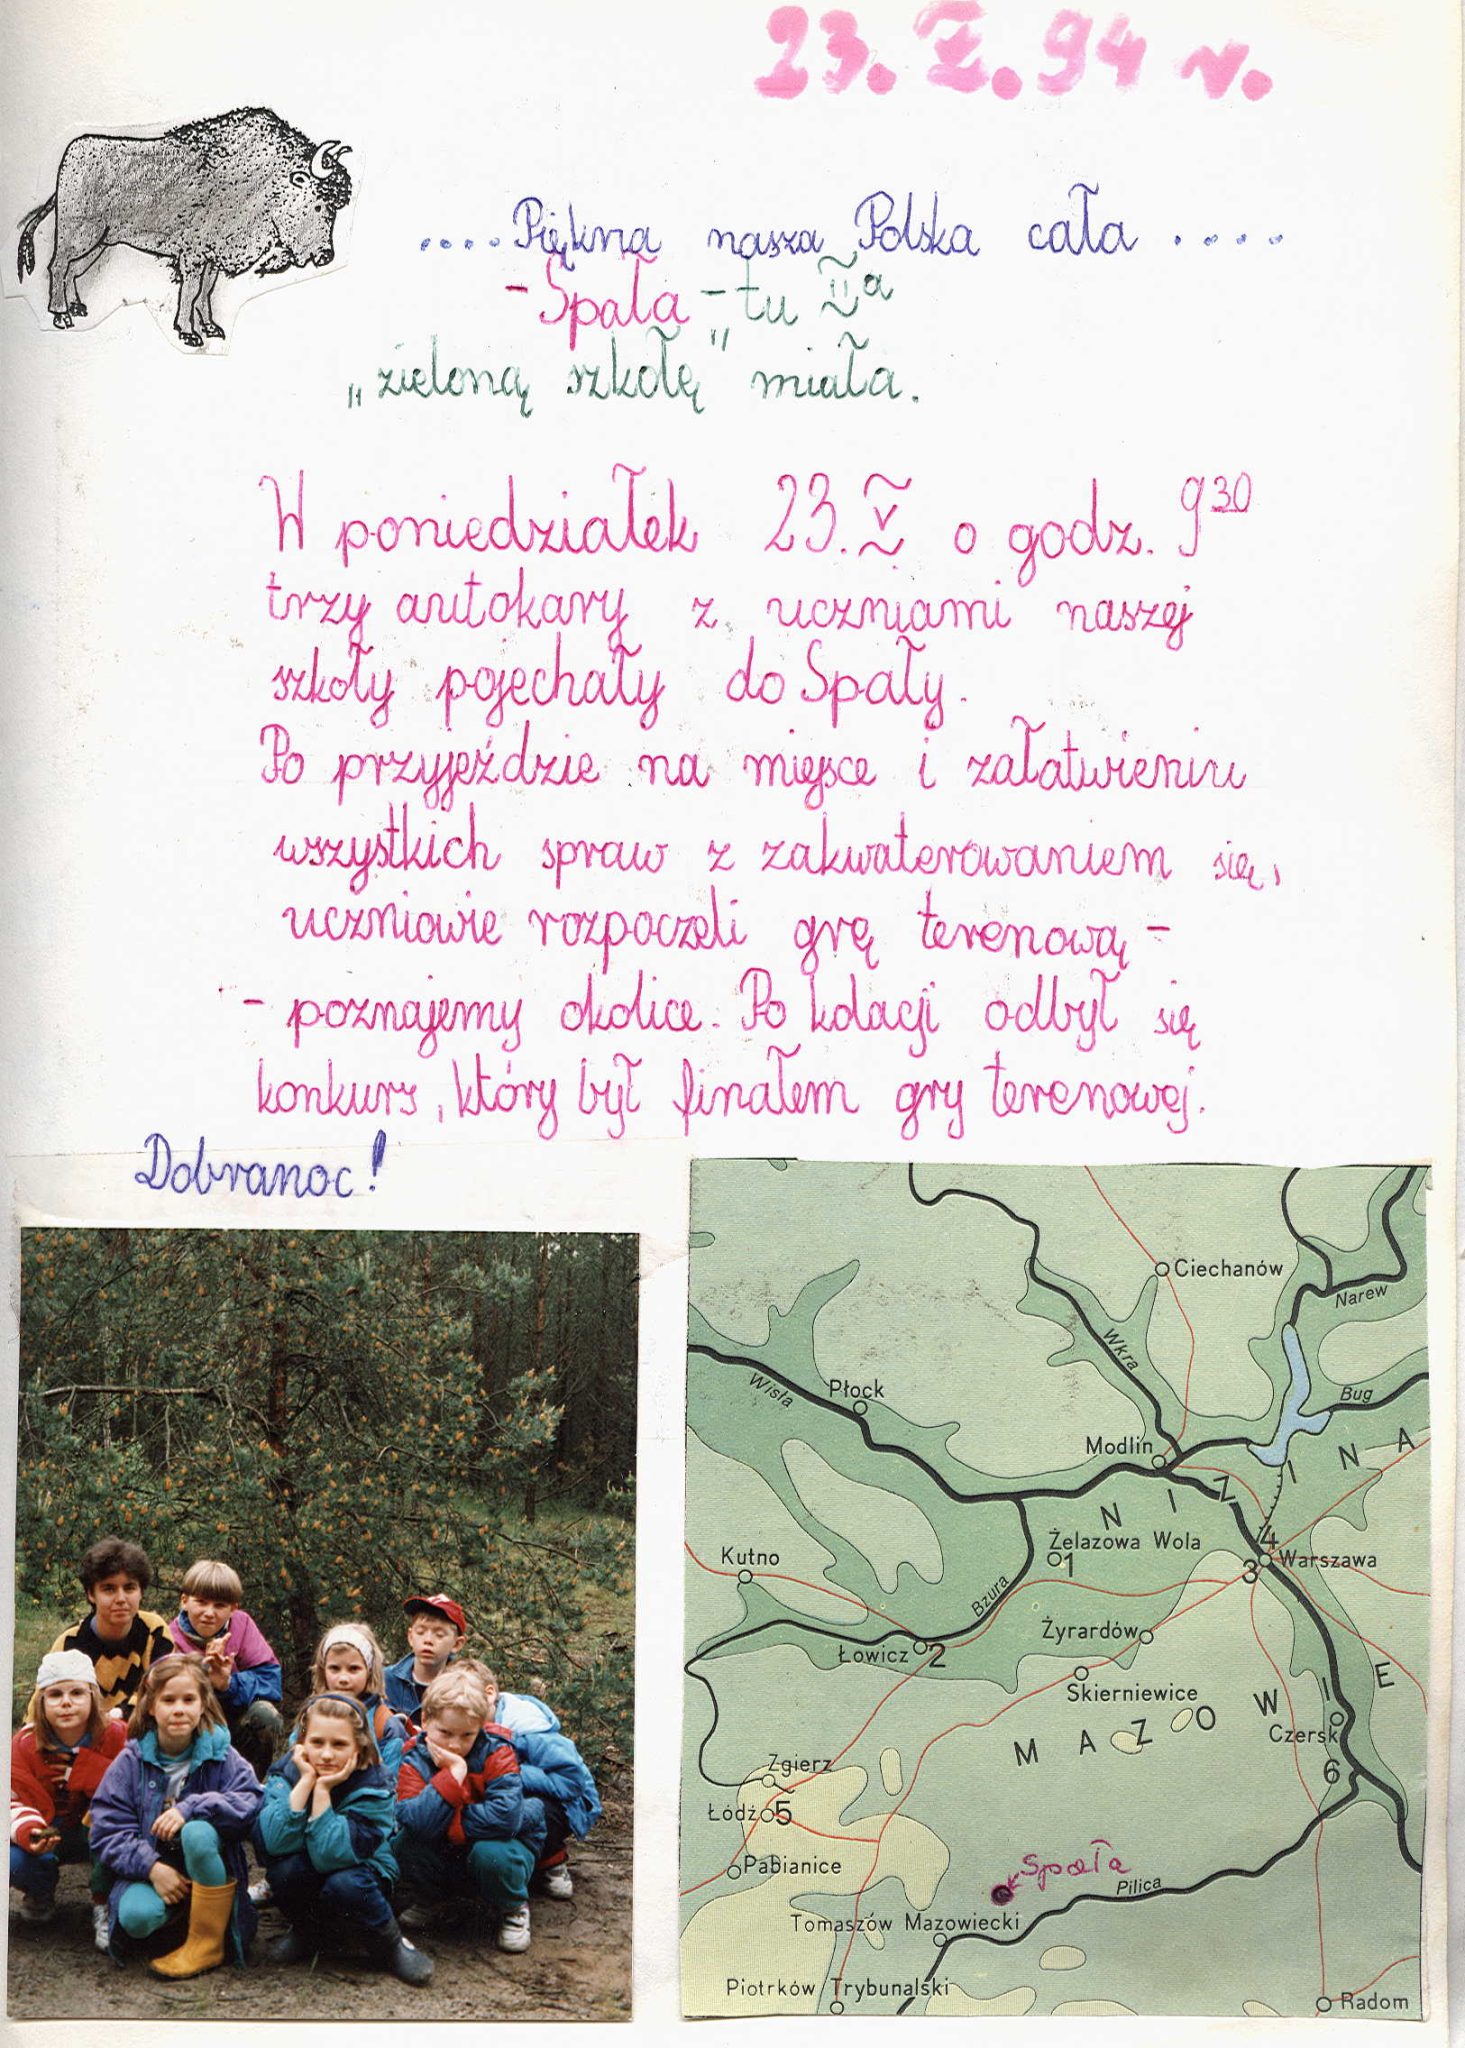 23. V. 94 r.
.... Piękna nasza Polska cała ....
- Spała - tu IIa
„zieloną szkołę" miała.
W poniedziałek 23. V o godz. 9³⁰
trzy autokary z uczniami naszej
szkoły pojechały do Spały.
Po przyjeździe na miejsce i załatwieniu
wszystkich spraw z zakwaterowaniem się,
uczniowie rozpoczeli grę terenową -
- poznajemy okolice. Po kolacji odbył się
konkurs, który był finałem gry terenowej.
Dobranoc!
Ciechanów
Narew
Wkra
Wisła
Płock
Bug
Modlin
NIZINA
Żelazowa Wola
1
Kutno
4
3 Warszawa
Bzura
Żyrardów
Łowicz 2
Skierniewice
MAZOWIE
Czersk
Zgierz
6
Łódź 5
Pabianice
Spała
Pilica
Tomaszów Mazowiecki
Piotrków Trybunalski
Radom